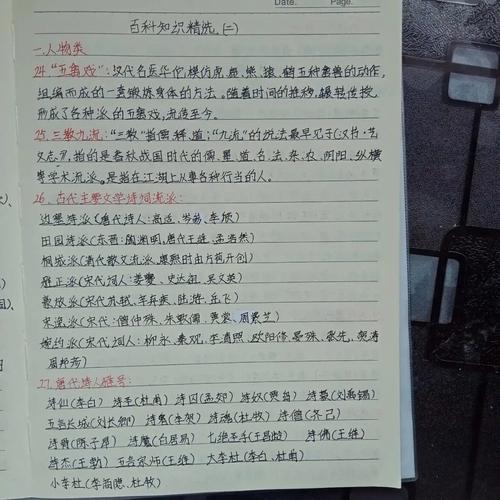 Date.  Page.
百科知识精选(二)
一.人物类
24."五禽戏":汉代名医华佗,模仿虎、鹿、熊、猿、鹤五种禽兽的动作,
组编而成的一套锻炼身体的方法。随着时间的推移,辗转传授,
形成了各种派的五禽戏,流传至今。
25.三教九流:"三教"指儒、释、道;"九流"的说法最早见于《汉书·艺
文志》,指的是春秋战国时代的儒、墨、道、名、法、杂、农、阴阳、纵横
等学术流派。是指在江湖上从事各种行当的人。
26.古代主要文学诗词流派:
边塞诗派(唐代诗人:高适、岑参、李颀)
田园诗派(东晋:陶渊明,唐代王维、孟浩然)
桐城派(清代散文流派,康熙时由方苞开创)
雅正派(宋代词人:姜夔、史达祖、吴文英)
豪放派(宋代苏轼、辛弃疾、陆游、岳飞)
宋流派(宋代:僧仲殊、朱敦儒、
婉约派(宋代词人:柳永、秦观、李清照、欧阳修、晏殊、张先、贺涛
周邦彦)
27.唐代诗人雅号:
诗仙(李白) 诗圣(杜甫) 诗囚(孟郊) 诗奴(贾岛) 诗豪(刘禹锡)
五言长城(刘长卿) 诗鬼(李贺) 诗魂(杜牧) 诗僧(齐己)
诗骨(陈子昂) 诗魔(白居易) 七绝圣手(王昌龄) 诗佛(王维)
诗杰(王勃) 五言宗师(王维) 大李杜(李白、杜甫)
小李杜(李商隐、杜牧)